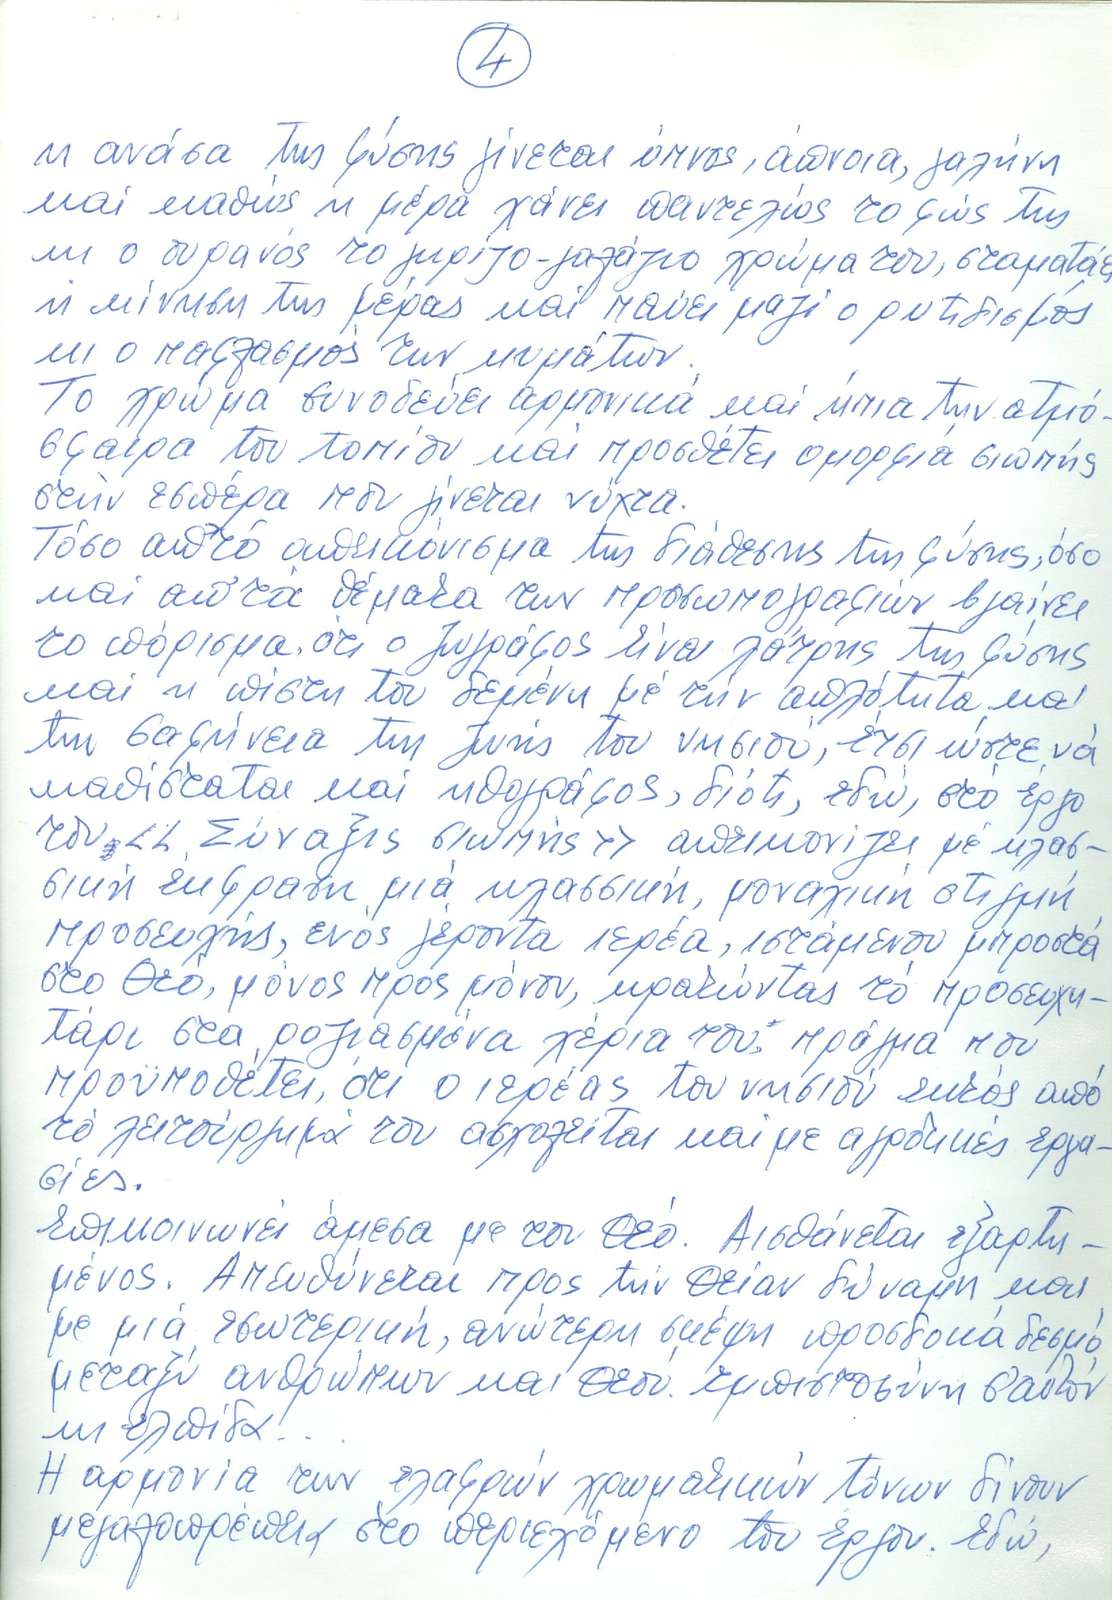 4
η ανάσα της φύσης γίνεται ύπνος, άπνοια, γαλήνη
και καθώς η μέρα χάνει παντελώς το φώς της
κι ο ουρανός το γκρίζο-γαλάζιο χρώμα του, σταματάει
η κίνηση της μέρας και παύει μαζί ο ρυτιδισμός
κι ο παφλασμός των κυμάτων.
Το χρώμα συνοδεύει αρμονικά και ήπια την ατμό-
σφαιρα του τοπίου και προσθέτει ομορφιά σιωπής
στήν εσπέρα που γίνεται νύχτα.
Τόσο απ'τό απεικόνισμα της διάθεσης της φύσης, όσο
και απ'τά θέματα των προσωπογραφιών βγαίνει
το πόρισμα, ότι ο ζωγράφος είναι λάτρης της φύσης
και η πίστη του δεμένη μέ τήν απλότητα και
την σαφήνεια της ζωής του νησιού, έτσι ώστε νά
καθίσταται και ηθογράφος, διότι, εδώ, στό έργο
του << Σύναξις σιωπής >> απεικονίζει μέ κλασ-
σική έκφραση μιά κλασσική, μοναχική στιγμή
προσευχής, ενός γέροντα ιερέα, ιστάμενου μπροστά
στο Θεό, μόνος προς μόνον, κρατώντας τό προσευχη-
τάρι στα ροζιασμένα χέρια του· πράγμα που
προϋποθέτει, ότι ο ιερέας του νησιού εκτός από
τό λειτούργημά του ασχολείται και με αγροτικές εργα-
σίες.
Επικοινωνεί άμεσα με τον Θεό. Αισθάνεται εξαρτη-
μένος. Απευθύνεται προς τήν Θείαν δύναμη και
με μιά εσωτερική, ανώτερη σκέψη προσδοκά δεσμό
μεταξύ ανθρώπων και Θεού. Εμπιστοσύνη σ'αυτόν
κι ελπίδα...
Η αρμονία των ελαφρών χρωματικών τόνων δίνουν
μεγαλοπρέπεια στο περιεχόμενο του έργου. Εδώ,